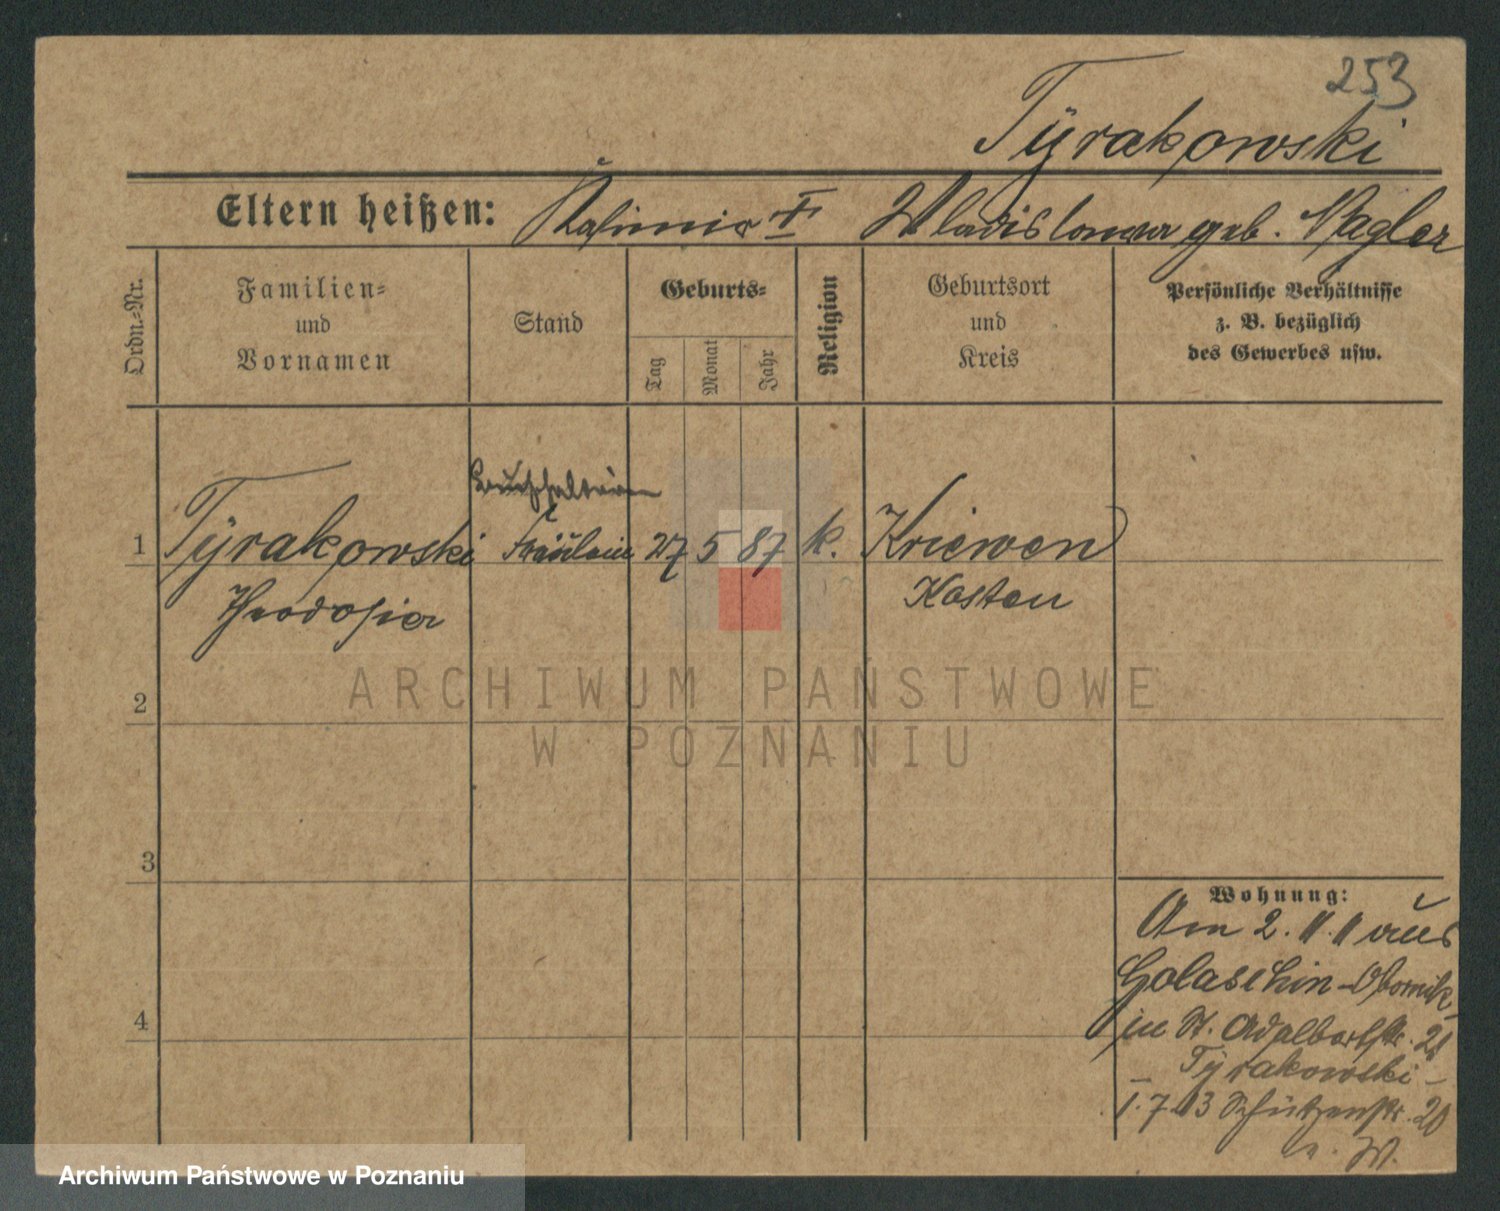 253
Tÿrakowski
Eltern heißen: Kasimir † Wladislawa geb. Nagler
Ordn.-Nr.
Familien-
und
Vornamen
Stand
Geburts-
Tag
Monat
Jahr
Religion
Geburtsort
und
Kreis
Persönliche Verhältnisse
z. B. bezüglich
des Gewerbes usw.
Buchhalterin
1 Tÿrakowski Fräulein 27 5 87 k. Kriewen
Theodosia Kosten
ARCHIWUM PAŃSTWOWE
W POZNANIU
2
3
4
Wohnung:
Am 2. 11. 11 aus
Golaschin-Obornik
in St. Adalbertstr. 21
Tÿrakowski -
1. 7. 13 Schützenstr. 20
Archiwum Państwowe w Poznaniu